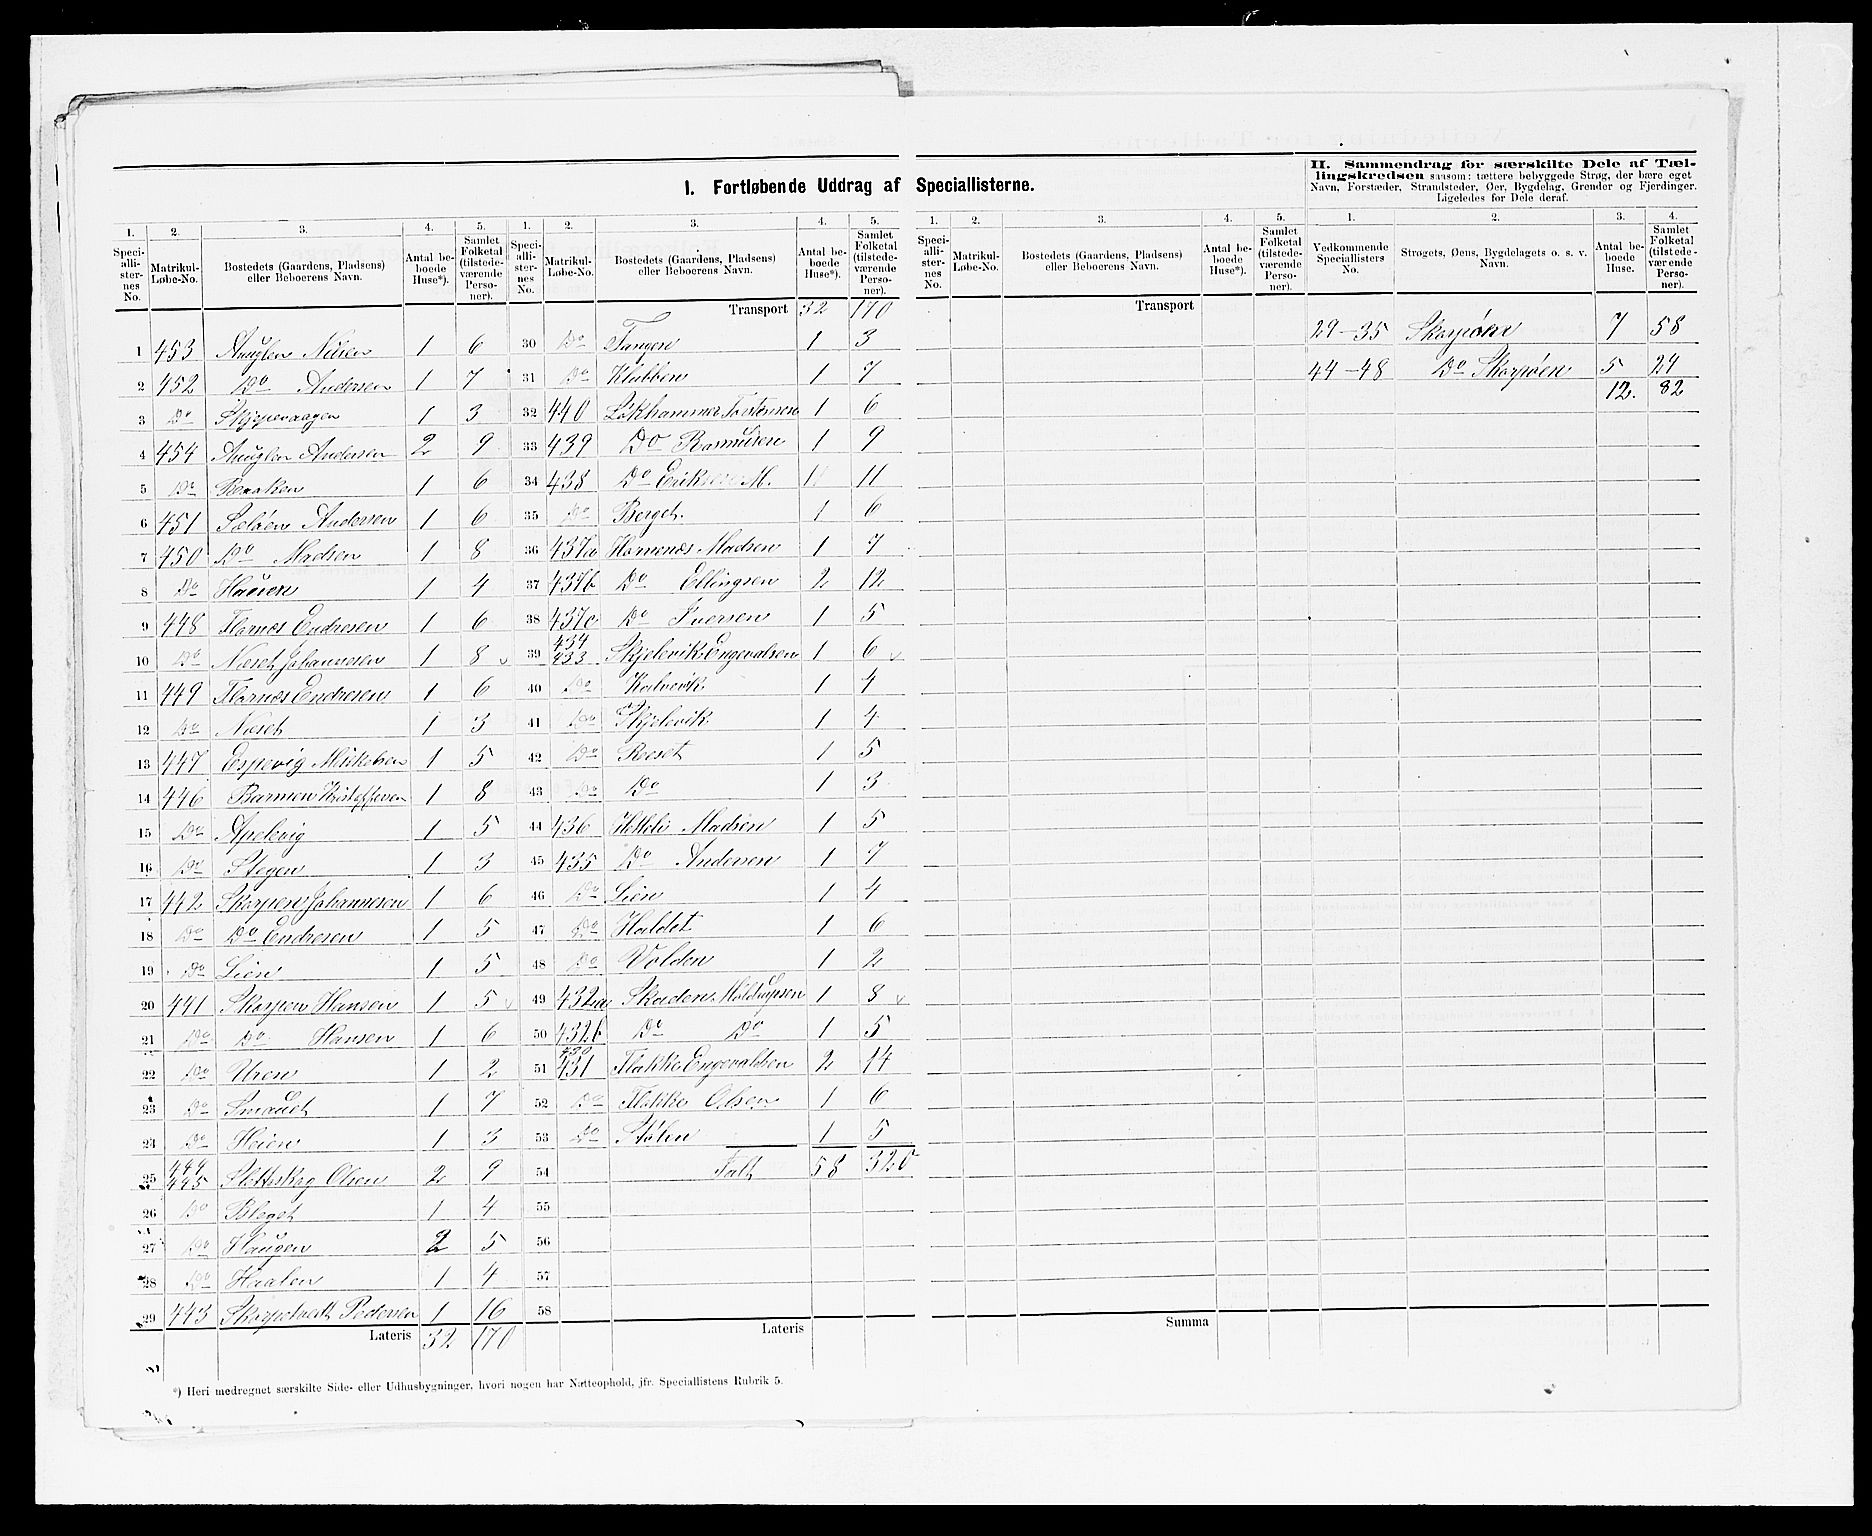 I. Fortløbende Uddrag af Speciallisterne.
II. Sammendrag for særskilte Dele af Tæl-
lingskredsen saasom: tættere bebyggede Strøg, der bære eget
Navn, Forstæder, Strandsteder, Øer, Bygdelag, Grender og Fjerdinger.
Ligeledes for Dele deraf.
1. 2. 3. 4. 5. 1. 2. 3. 4. 5. 1. 2. 3. 4. 5. 1. 2. 3. 4.
Speci-alli-ster-nes No. Matrikul-Løbe-No. Bostedets (Gaardens, Pladsens) eller Beboerens Navn. Antal be-boede Huse*). Samlet Folketal (tilstede-værende Perso-ner).
Speci-alli-ster-nes No. Matrikul-Løbe-No. Bostedets (Gaardens, Pladsens) eller Beboerens Navn. Antal be-boede Huse*). Samlet Folketal (tilstede-værende Perso-ner).
Speci-alli-ster-nes No. Matrikul-Løbe-No. Bostedets (Gaardens, Pladsens) eller Beboerens Navn. Antal be-boede Huse*). Samlet Folketal (tilstede-værende Perso-ner).
Vedkommende Speciallisters No. Strøgets, Øens, Bygdelagets o. s. v. Navn. Antal be-boede Huse. Samlet Folketal (tilstede-værende Perso-ner).
1 453 Nilsen 1 6
2 452 Do Andersen 1 7
3 Do Skjepevaagen 1 3
4 454 Andersen 2 9
5 Do Braaken 1 6
6 451 Sæløen Andersen 1 6
7 450 Do Madsen 1 8
8 Do 1 4
9 448 Flornes Endresen 1 6
10 Do Næset Johannesen 1 8
11 449 Flornes Endresen 1 6
12 Do Næset 1 3
13 447 Espevig Mikkelsen 1 5
14 446 Barmen Kristoffersen 1 8
15 Do Apelvig 1 5
16 Do Stegen 1 3
17 442 Skorpen Johannesen 1 6
18 Do Do Endresen 1 5
19 Do Lien 1 5
20 441 Skorpen Hansen 1 5
21 Do Do Hansen 1 6
22 Do Uren 1 2
23 Do 1 7
24 Do Heien 1 3
25 444 445 Sletteskog Olsen 2 9
26 Do 1 4
27 Do Haugen 2 5
28 Do Haalen 1 4
29 443 Skorpetvedt Pedersen 1 16
Lateris 32 170
Transport 32 170
30 Do Tangen 1 3
31 Do Klubben 1 7
32 440 Løkhammer Torstensen 1 6
33 439 Do Rasmusen 1 9
34 438 Do Eriksen M. 1 11
35 Do Berget. 1 6
36 437a Hornenæs Madsen 1 7
37 437b Do Ellingsen 2 12
38 437c Do Iversen 1 5
39 434 433 Skjelevik Engevalsen 1 6
40 Do Kalvevik 1 4
41 Do Skjelevik 1 4
42 Do Reeset 1 5
43 Do Do 1 3
44 436 Madsen 1 5
45 435 Do Andersen 1 7
46 Do Lien 1 4
47 Do Haldet 1 6
48 Do Volden 1 2
49 432a Skaden 1 8
50 432b Do Do 1 5
51 430 431 Flakke Engevaldsen 2 14
52 Do Flakke Olsen 1 6
53 Do Stølen 1 5
54 Talt 58 320
55
56
57
58
Lateris
Transport
Summa
29-35 Skorpøen 7 58
44-48 Do Skorpøen 5 24
12. 82
*) Heri medregnet særskilte Side- eller Udhusbygninger, hvori nogen har Natteophold, jfr. Speciallistens Rubrik 5.